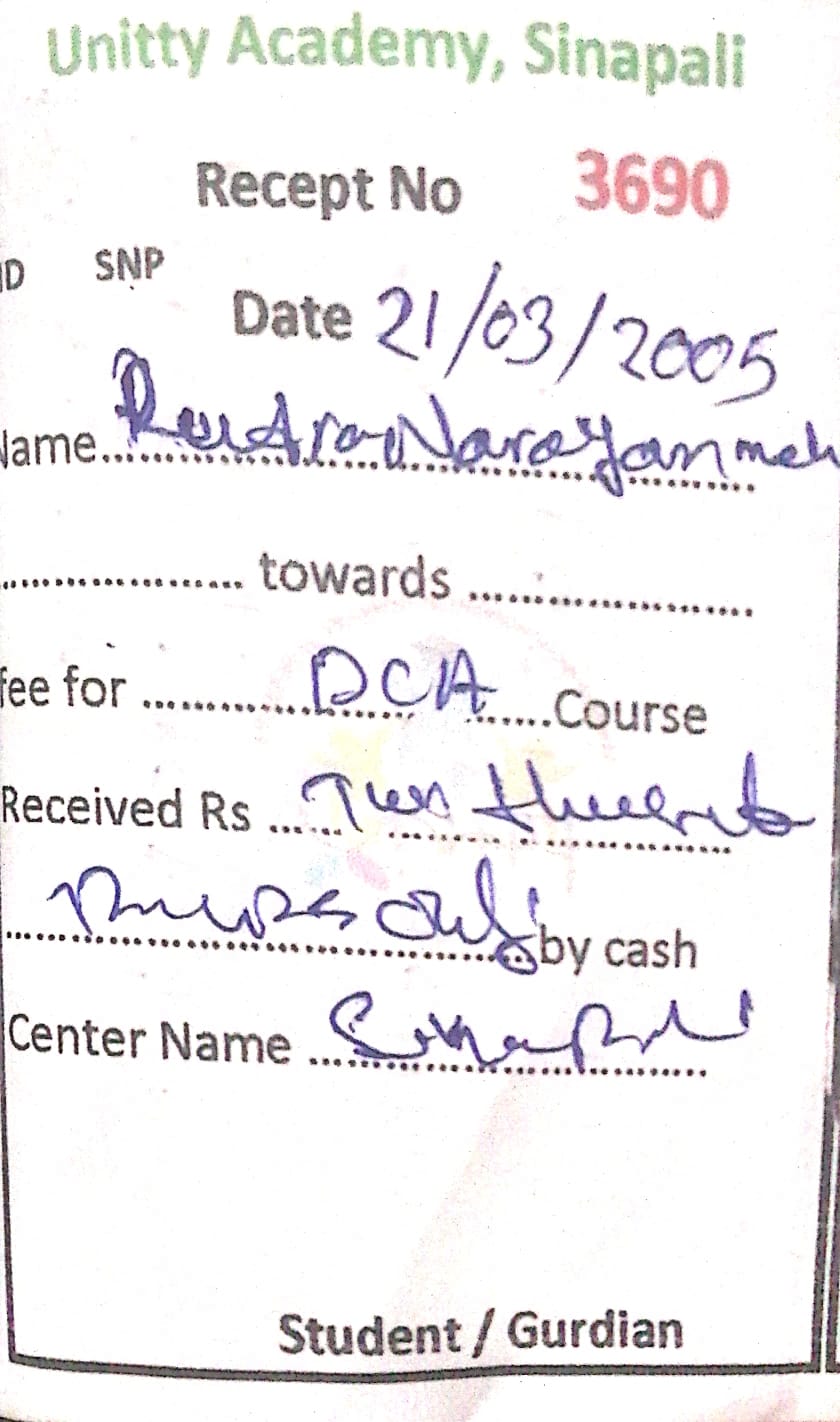 Unitty Academy, Sinapali
Recept No 3690
ID SNP
Date 21/03/2005
Name....RudraNarayan meh
.................... towards ....................
fee for ............DCA......Course
Received Rs ......Two
.......................................by cash
Center Name ...Sinapali
Student / Gurdian